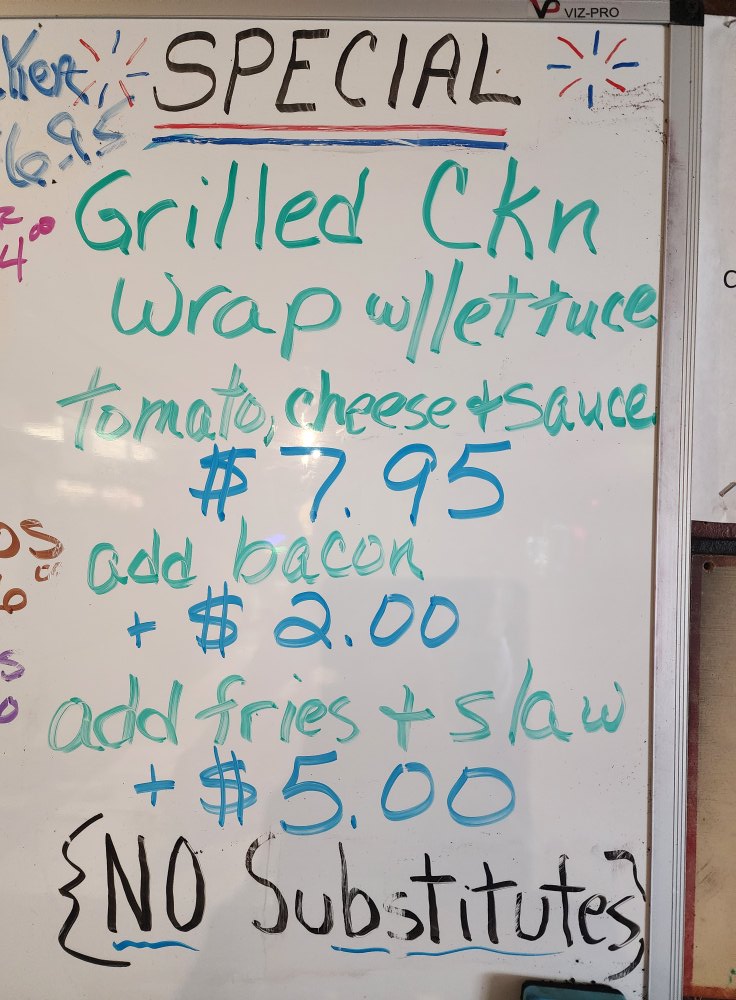 VP VIZ-PRO
SPECIAL
6.95
4.00
Grilled Ckn
Wrap w/lettuce
tomato, cheese + sauce
$7.95
add bacon
+ $2.00
add fries + slaw
+ $5.00
{NO Substitutes}